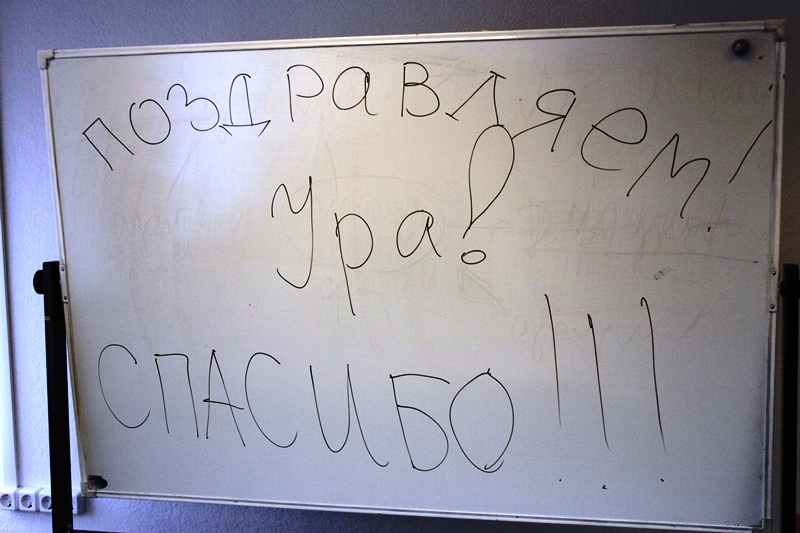 поздравляем!
Ура!
СПАСИБО!!!